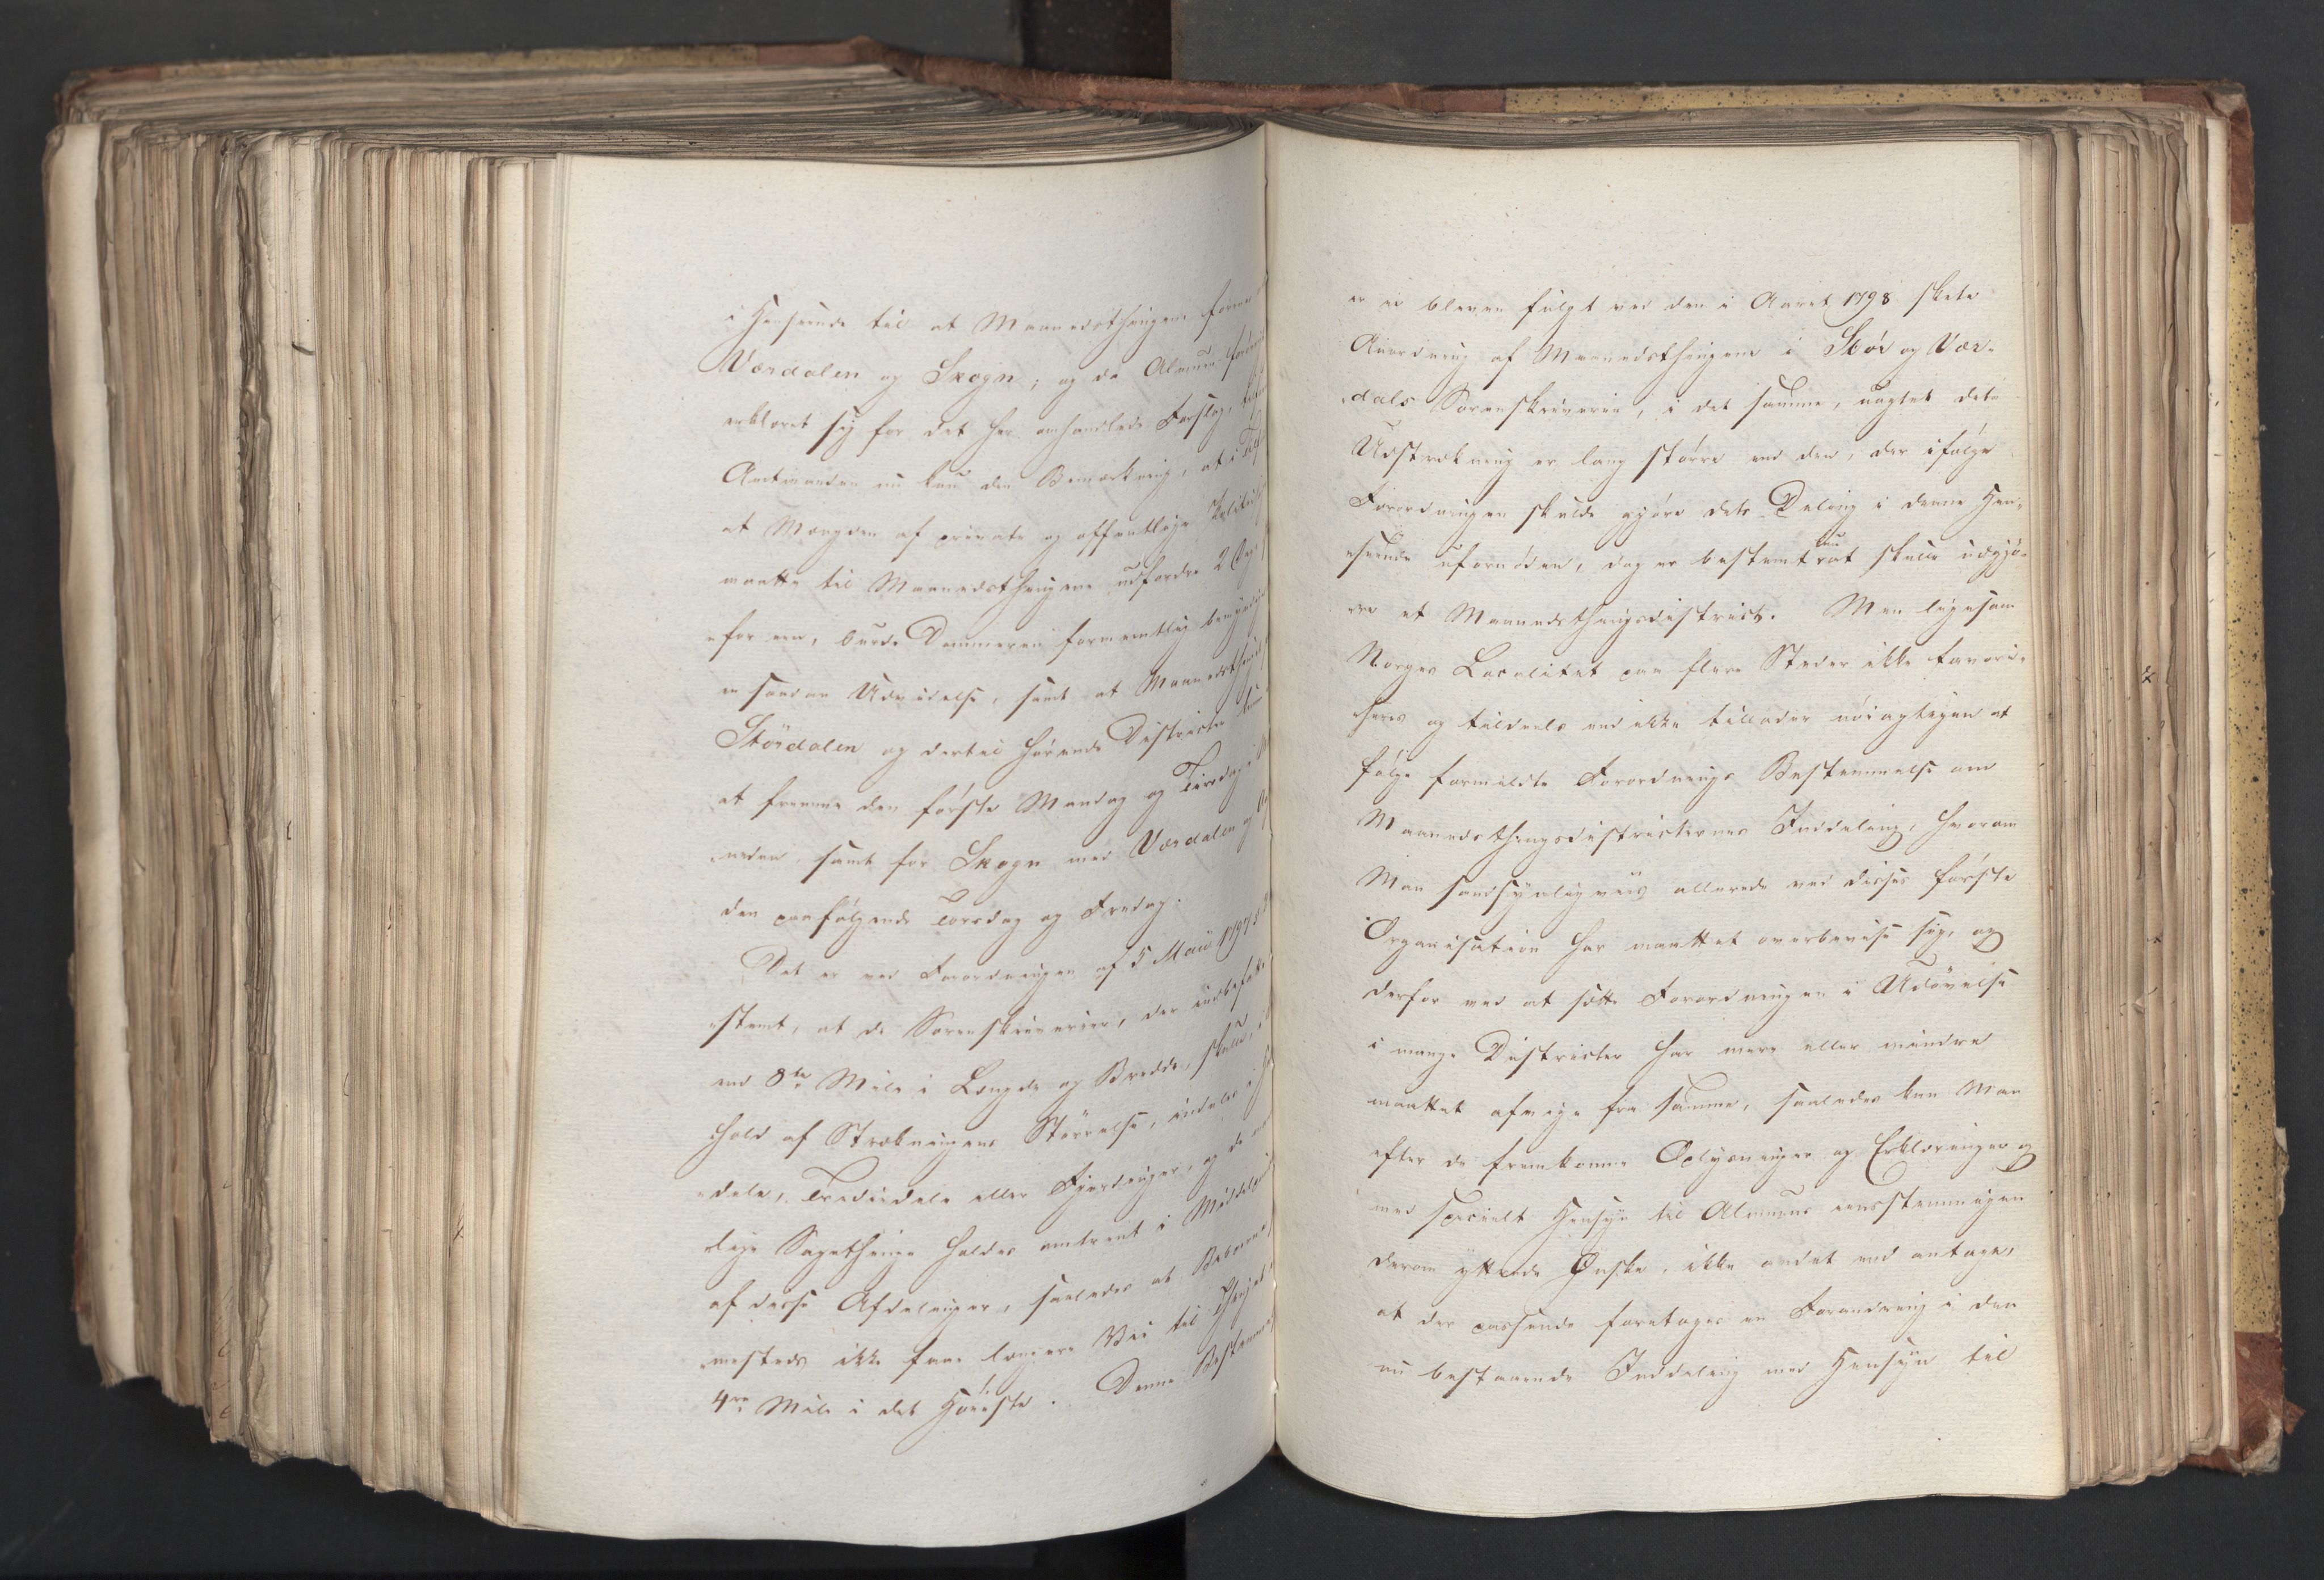 i Henseende til at Maanedsthingene for
Værdalen og Skogn; og da Almuen
erklæret sig for det her omhandlede Forslag,
Amtmanden nu kun den Bemærkning, at i
at Mængden af private og offentlige
maatte til Maanedsthingene udfordre 2
for een, burde Dommeren formeentlig
en saadan Udvidelse, samt at
Stördalen og dertil hørende Districter
at fremme den første Mandag og Tirsdag i
neden, samt for Skogn med Værdalen og
den paafølgende Torsdag og Fredag.
Det er ved Forordningen af 5 Maii 1797 §
stemt, at de Sorenskriverier, der indbefatte
end 8te Mile i Længde og Bredde, skulle, i
hold af Strækningens Størrelse, inddeles i
dele, Tredindele eller Fjerdinger, og de
lige Sagething holdes omtrent i
af disse Afdelinger, saaledes at Beboerne
mesteds ikke faae længere Vei til Thinget
4re Mile i det Høieste. Denne Bestemmelse
er ei bleven fulgt ved den i Aaret 1798 skete
Anordning af Maanedsthingene i Stör og Vær-
dals Sorenskriverie, i det samme, uagtet dets
Udstrækning er lang større end den, der ifølge
Forordningen skulde gjøre dets Deling i denne Hen-
seende ufornøden, dog er bestemt at skulle udgjø-
re et Maanedsthingsdistrict. Men ligesom
Norges Localitet paa flere Steder ikke favori-
seres og tildeels end ikke tillader nøiagtigen at
følge formeldte Forordnings Bestemmelse om
Maanedsthingsdistricternes Inddeling, hvorom
Man sandsynligviis allerede ved disses første
Organisation har maattet overbevise sig, og
derfor ved at sætte Forordningen i Udøvelse
i mange Districter har mere eller mindre
maattet afvige fra samme, saaledes kan Man
efter de fremkomne Oplysninger og Erklæringer og
med specielt Hensyn til Almuens eensstemmigen
derom yttrede Ønske, ikke andet end antage,
at der passende foretages en Forandring i den
nu bestaaende Inddeling med Hensyn til